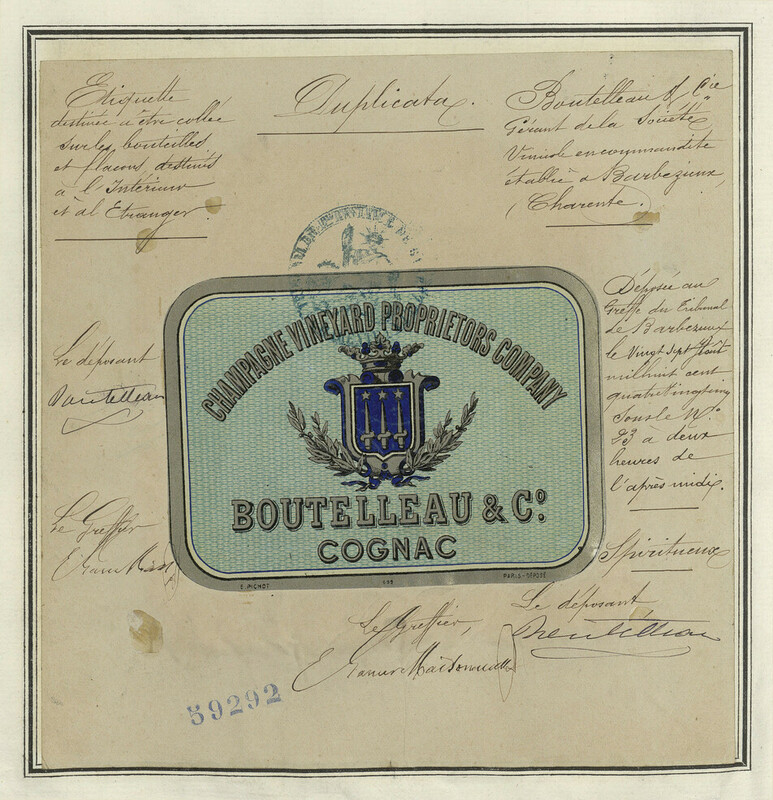 Etiquette
destinée à être collée
sur les bouteilles
et flacons, destinés
à l'Intérieur
et à l'Etranger.
Duplicata.
Boutelleau & Cie
Gérant de la Société
Vinicole en commandite
établie à Barbezieux,
(Charente.)
CHAMPAGNE VINEYARD PROPRIETORS COMPANY
BOUTELLEAU & Co.
COGNAC
E. PICHOT
PARIS - DÉPOSÉ
Déposée au
Greffe du Tribunal
de Barbezieux
le Vingt Sept Août
mil huit cent
quatre vingt cinq
sous le No.
23 à deux
heures de
l'après midi.
Spiritueux
Le déposant
Boutelleau
Le Greffier
Le Greffier,
Le déposant,
Boutelleau
59292